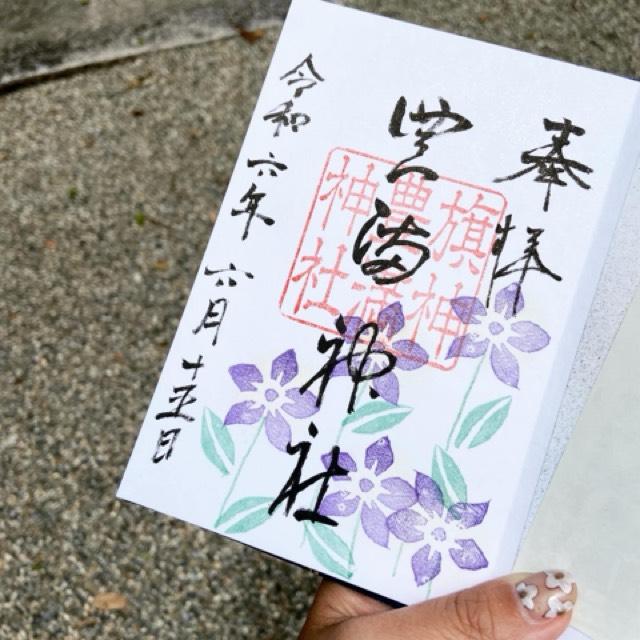 奉拝
豊満神社
旗神
豊満
神社
令和六年六月十五日